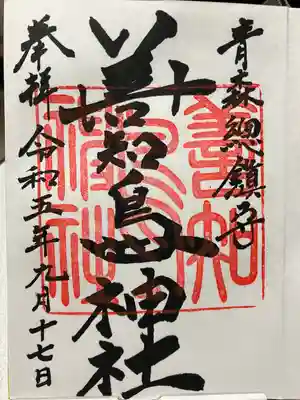 青森總鎮守
善知鳥神社
奉拝 令和五年九月十七日
善知鳥神社